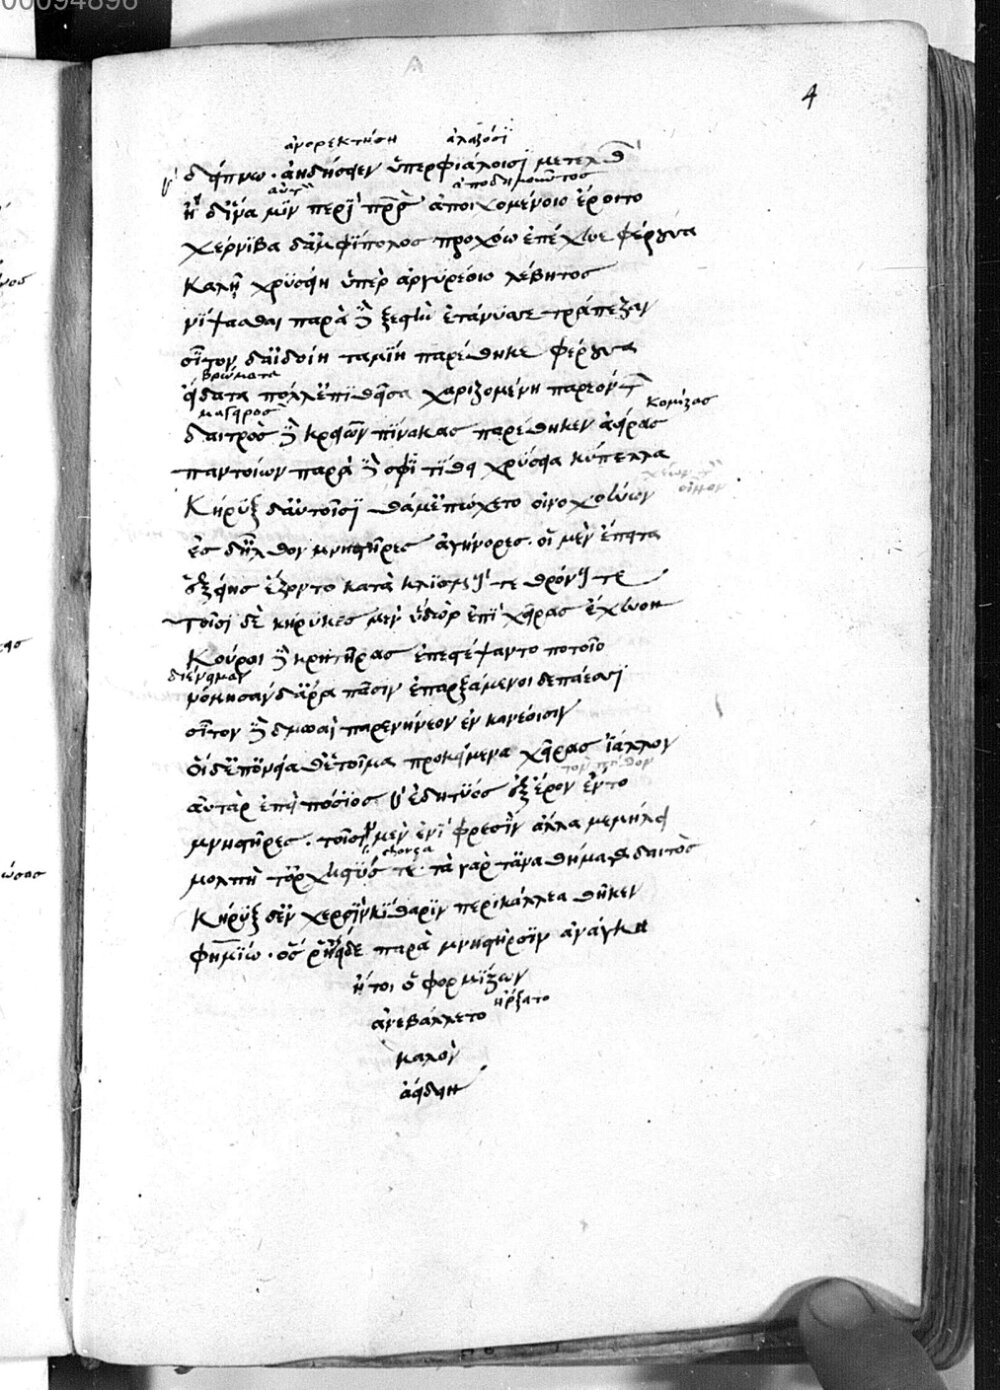 00094896
4
ἀνορεκτήση ἀλαζόσϊ
δείπνω· ἀηδήσειεν ὑπερφϊάλοισϊ μετελθ
αὐτ ἀποδημοῦντος
ἢ δ' ἵνα μϊν περὶ πρσ ἀποιχομένοιο ἔροιτο
χέρνϊβα δ' ἀμφϊπολος προχόω ἐπέχευε φέρουσα
καλῇ χρϋσείη ὑπὲρ ἀργϋρέοιο λέβητος
νϊψασθαι παρὰ δὲ ξεστὴν ἐτάνυσσε τράπεζαν
σῖτον δ' αἰδοίη ταμϊη παρέθηκε φέρουσα
βρώματα
εἴδατα πόλλ' ἐπϊθεῖσα χαριζομένη παρεόντ
μάγειρος κομίσας
δαιτρὸς δὲ κρειῶν πϊνακας παρέθηκεν ἀείρας
παντοίων παρὰ δὲ σφϊ τϊθει χρύσεια κύπελλα
οἶνον
κήρϋξ δ' αὐτοῖσϊ θάμ' ἐπώχετο οἰνοχοεύων
ἐς δ' ἦλθον μνηστῆρες ἀγήνορες· οἱ μὲν ἔπειτα
ἑξείης ἕζοντο κατὰ κλϊσμούς τε θρόνους τε
τοῖσϊ δὲ κήρυκες μὲν ὕδωρ ἐπϊ χεῖρας ἔχευον
κοῦροι δὲ κρητῆρας ἐπεστέψαντο ποτοῖο
διένειμαν
νώμησαν δ' ἄρα πᾶσιν ἐπαρξάμενοι δεπάεσσϊ
σῖτον δὲ δμωαὶ παρενήνεον ἐν κανέοισιν
οἱ δ' ἐπ' ὀνείαθ' ἑτοῖμα προκείμενα χεῖρας ἴαλλον
αὐτὰρ ἐπεὶ πόσϊος ἐδητϋος ἐξ ἔρον ἕντο
μνηστῆρες· τοῖσϊ μὲν ἐνϊ φρεσὶν ἄλλα μεμήλει
μολπή τ' ὀρχηστϋς τε τὰ γάρ τ' ἀναθήματα δαιτὸς
κήρϋξ δ' ἐν χερσὶν κϊθαρϊν περικάλλεα θῆκεν
φημϊω· ὅς ῥ' ἤειδε παρὰ μνηστῆρσϊν ἀνάγκη
ἤτοι ὁ φορμϊζων
ἤρξατο
ἀνεβάλλετο
καλὸν
ἀείδειν